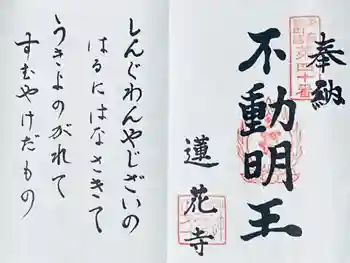 奉納
不動明王
蓮花寺
しんぐわんやじざいの
はるにはなさきて
うきよのがれて
すむやけだもの